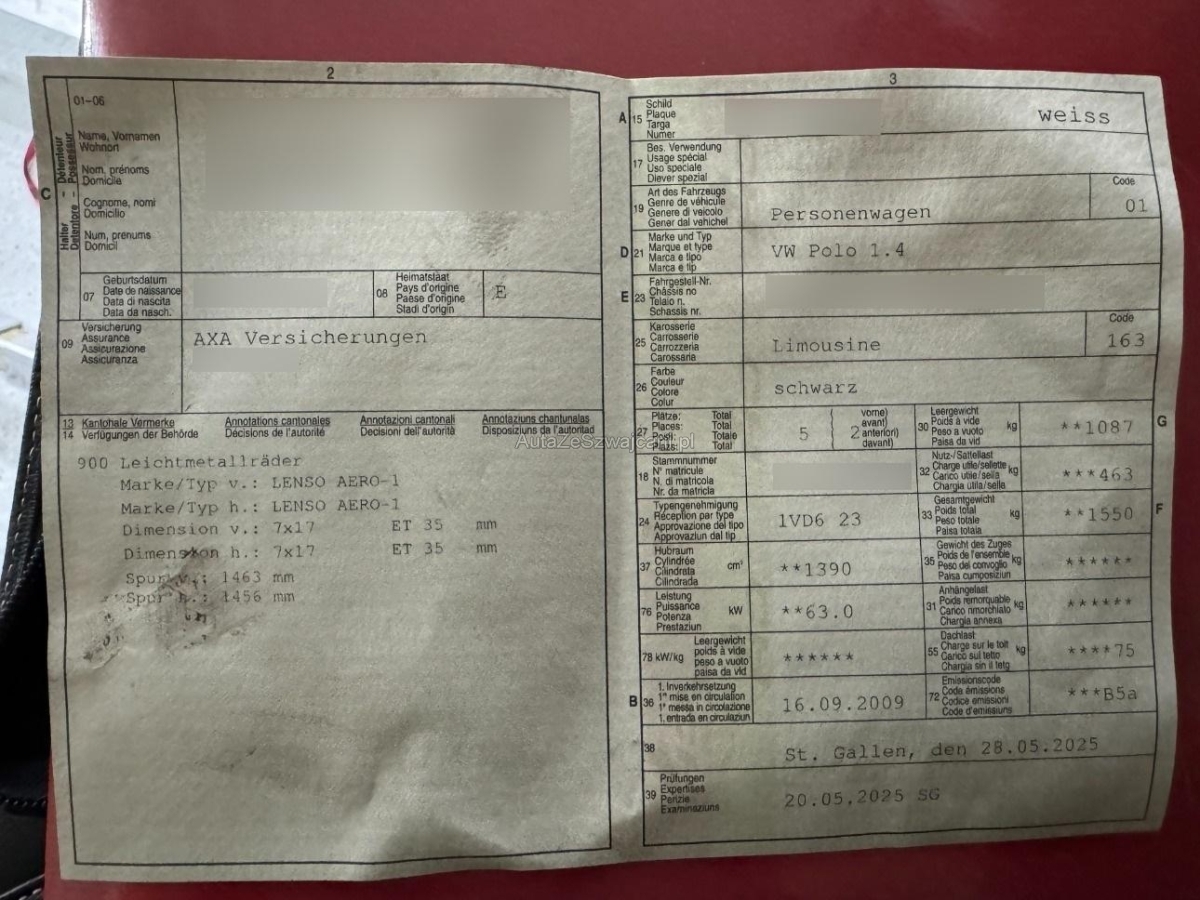 2
01-06
C
Halter - Détenteur
Detentore - Possessur
Name, Vornamen
Wohnort
Nom, prénoms
Domicile
Cognome, nomi
Domicilio
Num, prenums
Domicil
07
Geburtsdatum
Date de naissance
Data di nascita
Data da nasch.
08
Heimatstaat
Pays d'origine
Paese d'origine
Stadi d'origin
E
09
Versicherung
Assurance
Assicurazione
Assicuranza
AXA Versicherungen
13 Kantonale Vermerke Annotations cantonales Annotazioni cantonali Annotaziuns chantunalas
14 Verfügungen der Behörde Décisions de l'autorité Decisioni dell'autorità Disposiziuns da l'autoritad
900 Leichtmetallräder
Marke/Typ v.: LENSO AERO-1
Marke/Typ h.: LENSO AERO-1
Dimension v.: 7x17 ET 35 mm
Dimension h.: 7x17 ET 35 mm
Spur v.: 1463 mm
Spur h.: 1456 mm
AutaZeSzwajcarii.pl
3
A 15
Schild
Plaque
Targa
Numer
weiss
17
Bes. Verwendung
Usage spécial
Uso speciale
Diever spezial
19
Art des Fahrzeugs
Genre de véhicule
Genere di veicolo
Gener dal vehichel
Personenwagen
Code
01
D 21
Marke und Typ
Marque et type
Marca e tipo
Marca e tip
VW Polo 1.4
E 23
Fahrgestell-Nr.
Châssis no
Telaio n.
Schassis nr.
25
Karosserie
Carrosserie
Carrozzeria
Carosseria
Limousine
Code
163
26
Farbe
Couleur
Colore
Colur
schwarz
27
Plätze: Total
Places: Total
Posti: Totale
Plazs: Total
5
2
vorne)
avant)
anteriori)
davant)
30
Leergewicht
Poids à vide
Peso a vuoto
Paisa da vid
kg
**1087
G
18
Stammnummer
N° matricule
N. di matricola
Nr. da matricla
32
Nutz-/Sattellast
Charge utile/sellette
Carico utile/sella
Chargia utila/sella
kg
***463
24
Typengenehmigung
Réception par type
Approvazione del tipo
Approvaziun dal tip
1VD6 23
33
Gesamtgewicht
Poids total
Peso totale
Paisa totala
kg
**1550
F
37
Hubraum
Cylindrée
Cilindrata
Cilindrada
cm³
**1390
35
Gewicht des Zuges
Poids de l'ensemble
Peso del convoglio
Paisa cumposiziun
kg
******
76
Leistung
Puissance
Potenza
Prestaziun
kW
**63.0
31
Anhängelast
Poids remorquable
Carico rimorchiato
Chargia annexa
kg
******
78 kW/kg
Leergewicht
poids à vide
peso a vuoto
paisa da vid
******
55
Dachlast
Charge sur le toit
Carico sul tetto
Chargia sin il tetg
kg
****75
B 36
1. Inverkehrsetzung
1re mise en circulation
1a messa in circolazione
1. entrada en circulaziun
16.09.2009
72
Emissionscode
Code émissions
Codice emissioni
Code d'emissiuns
***B5a
38
St. Gallen, den 28.05.2025
39
Prüfungen
Expertises
Perizie
Examinaziuns
20.05.2025 SG